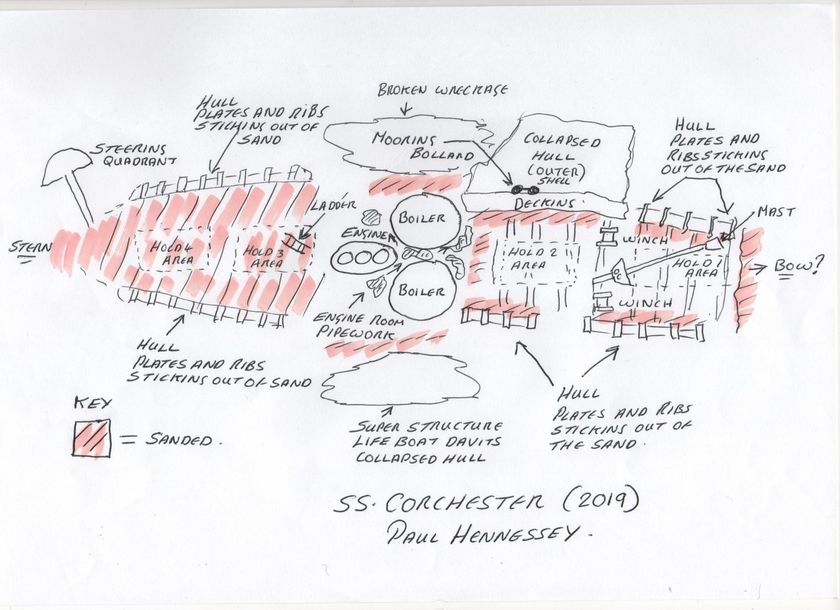 BROKEN WRECKAGE
HULL
PLATES AND RIBS
STICKING OUT OF
SAND
STEERING
QUADRANT
MOORING
BOLLARD
COLLAPSED
HULL
(OUTER)
SHELL
DECKING
HULL
PLATES AND
RIBS STICKING
OUT OF THE SAND
MAST
LADDER
STERN
HOLD 4
AREA
HOLD 3
AREA
ENGINE
BOILER
BOILER
HOLD 2
AREA
WINCH
HOLD 1
AREA
WINCH
BOW?
ENGINE ROOM
PIPEWORK
HULL
PLATES AND RIBS
STICKING OUT OF SAND
HULL
PLATES AND RIBS
STICKING OUT OF
THE SAND.
KEY
= SANDED.
SUPER STRUCTURE
LIFE BOAT DAVITS
COLLAPSED HULL
SS. CORCHESTER (2019)
PAUL HENNESSEY.